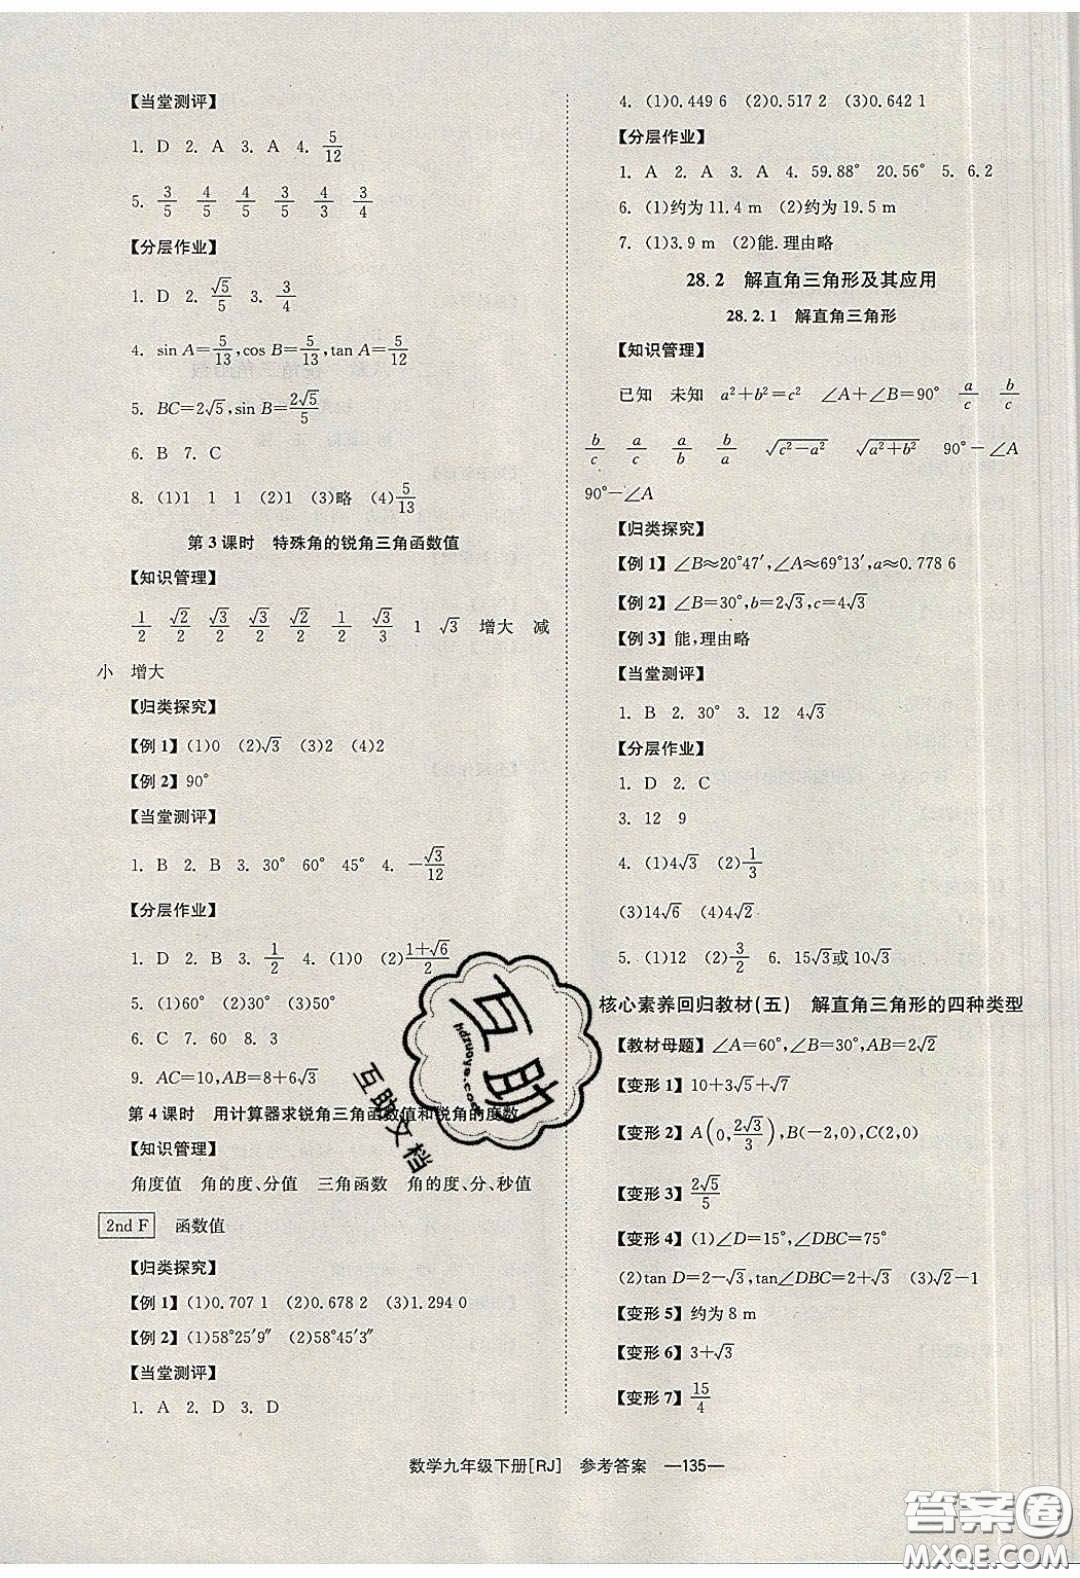 【当堂测评】
1. D 2. A 3. A 4. 5/12
5. 3/5 4/5 4/5 3/5 4/3 3/4
【分层作业】
1. D 2. √5/5 3. 3/4
4. sin A=5/13,cos B=5/13,tan A=5/12
5. BC=2√5,sin B=2√5/5
6. B 7. C
8. (1)1 1 1 (2)1 (3)略 (4)5/13
第3课时 特殊角的锐角三角函数值
【知识管理】
1/2 √2/2 √3/2 √3/2 √2/2 1/2 √3/3 1 √3 增大 减
小 增大
【归类探究】
【例1】(1)0 (2)√3 (3)2 (4)2
【例2】90°
【当堂测评】
1. B 2. B 3. 30° 60° 45° 4. -√3/12
【分层作业】
1. D 2. B 3. 1/2 4. (1)0 (2)(1+√6)/2
5. (1)60° (2)30° (3)50°
6. C 7. 60 8. 3
9. AC=10,AB=8+6√3
第4课时 用计算器求锐角三角函数值和锐角的度数
【知识管理】
角度值 角的度、分值 三角函数 角的度、分、秒值
2nd F 函数值
【归类探究】
【例1】(1)0.707 1 (2)0.678 2 (3)1.294 0
【例2】(1)58°25′9″ (2)58°45′3″
【当堂测评】
1. A 2. D 3. D
4. (1)0.449 6 (2)0.517 2 (3)0.642 1
【分层作业】
1. A 2. A 3. A 4. 59.88° 20.56° 5. 6.2
6. (1)约为11.4 m (2)约为19.5 m
7. (1)3.9 m (2)能.理由略
28.2 解直角三角形及其应用
28.2.1 解直角三角形
【知识管理】
已知 未知 a²+b²=c² ∠A+∠B=90° a/c b/c
b/c a/c a/b b/a √(c²-a²) √(a²+b²) 90°-∠A
90°-∠A
【归类探究】
【例1】∠B≈20°47′,∠A≈69°13′,a≈0.778 6
【例2】∠B=30°,b=2√3,c=4√3
【例3】能,理由略
【当堂测评】
1. B 2. 30° 3. 12 4√3
【分层作业】
1. D 2. C
3. 12 9
4. (1)4√3 (2)1/3
(3)14√6 (4)4√2
5. (1)12 (2)3/2 6. 15√3或10√3
核心素养回归教材(五) 解直角三角形的四种类型
【教材母题】∠A=60°,∠B=30°,AB=2√2
【变形1】10+3√5+√7
【变形2】A(0,2√3/3),B(-2,0),C(2,0)
【变形3】2√5/5
【变形4】(1)∠D=15°,∠DBC=75°
(2)tan D=2-√3,tan∠DBC=2+√3 (3)√2-1
【变形5】约为8 m
【变形6】3+√3
【变形7】15/4
数学九年级下册[RJ] 参考答案 —135—
互助
hdzuoye.com
互助文档
答案圈
MXQE.COM